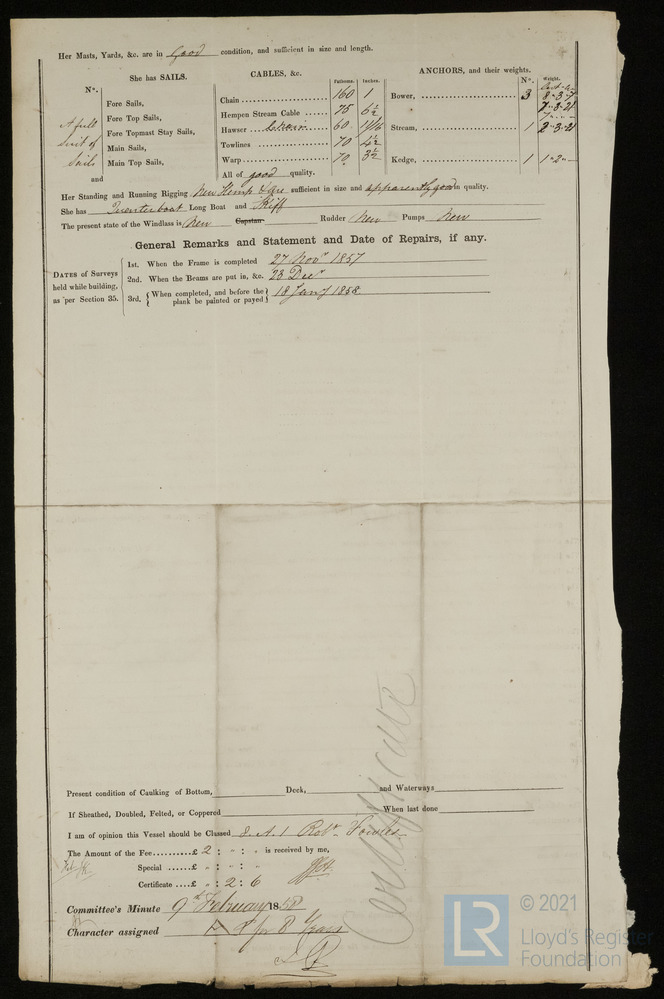 Her Masts, Yards, &c. are in Good condition, and sufficient in size and length.
She has SAILS.
CABLES, &c.
Fathoms. Inches.
ANCHORS, and their weights.
Nº. Weight.
Nº.
A full Suit of Sails
Fore Sails,
Fore Top Sails,
Fore Topmast Stay Sails,
Main Sails,
Main Top Sails,
and
Chain 160 1
Hempen Stream Cable 75 6½
Hawser Chain 60 11/16
Towlines 70 4½
Warp 70 3½
All of good quality.
Bower, 3 8..3..7
7..3..21
Stream, 1 2..3..21
Kedge, 1 1..2..
Her Standing and Running Rigging New Hemp & are sufficient in size and apparently good in quality.
She has Quarterboat Long Boat and Skiff
The present state of the Windlass is New Capstan Rudder New Pumps New
General Remarks and Statement and Date of Repairs, if any.
DATES of Surveys held while building, as per Section 35.
1st. When the Frame is completed 27 Novr 1857
2nd. When the Beams are put in, &c. 23 Decr
3rd. {When completed, and before the plank be painted or payed} 18 Jany 1858
Certificate
Present condition of Caulking of Bottom, Deck, and Waterways
If Sheathed, Doubled, Felted, or Coppered When last done
I am of opinion this Vessel should be Classed 8. A. 1 Robt Fowles
The Amount of the Fee..........£ 2 : " : " is received by me,
Special ......£ " : " : "
Certificate ....£ " : 2 : 6
Committee's Minute 9th February 1858
Character assigned A 1 for 8 Years
LR
© 2021
Lloyd's Register
Foundation